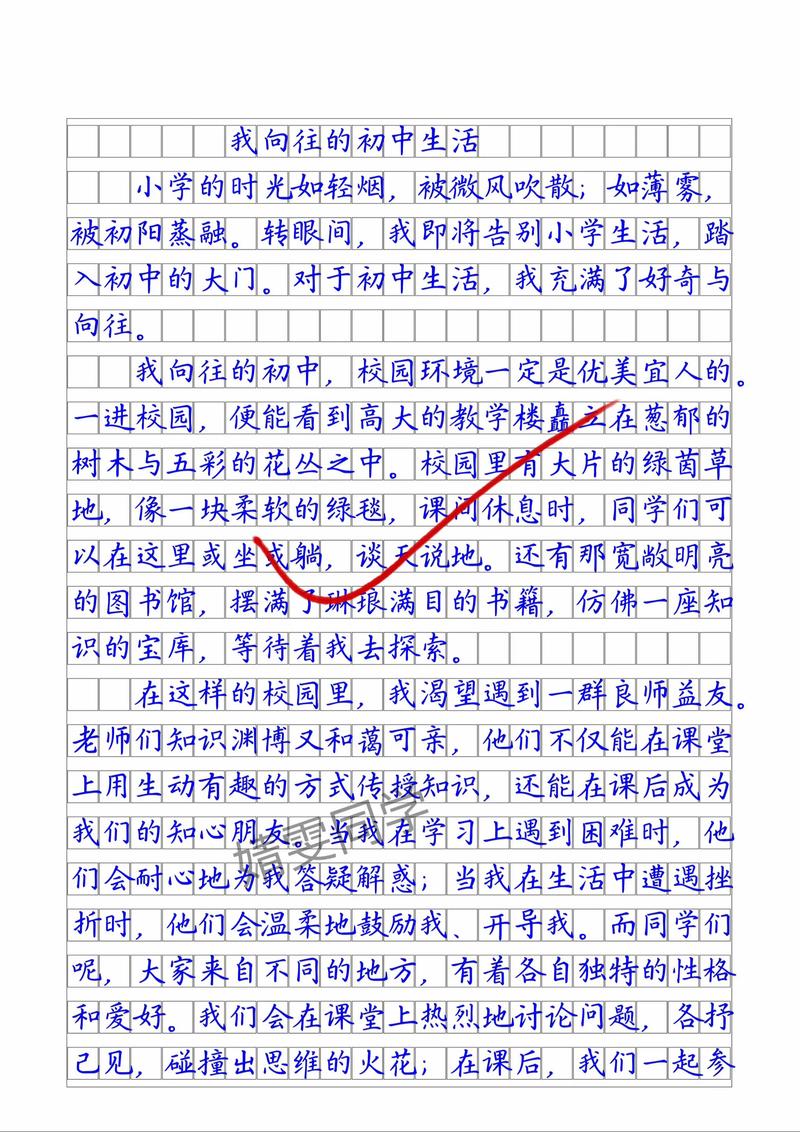 我向往的初中生活
小学的时光如轻烟，被微风吹散；如薄雾，
被初阳蒸融。转眼间，我即将告别小学生活，踏
入初中的大门。对于初中生活，我充满了好奇与
向往。
我向往的初中，校园环境一定是优美宜人的。
一进校园，便能看到高大的教学楼矗立在葱郁的
树木与五彩的花丛之中。校园里有大片的绿茵草
地，像一块柔软的绿毯，课间休息时，同学们可
以在这里或坐或躺，谈天说地。还有那宽敞明亮
的图书馆，摆满了琳琅满目的书籍，仿佛一座知
识的宝库，等待着我去探索。
在这样的校园里，我渴望遇到一群良师益友。
老师们知识渊博又和蔼可亲，他们不仅能在课堂
上用生动有趣的方式传授知识，还能在课后成为
我们的知心朋友。当我在学习上遇到困难时，他
们会耐心地为我答疑解惑；当我在生活中遭遇挫
折时，他们会温柔地鼓励我、开导我。而同学们
呢，大家来自不同的地方，有着各自独特的性格
和爱好。我们会在课堂上热烈地讨论问题，各抒
己见，碰撞出思维的火花；在课后，我们一起参
婧雯同学